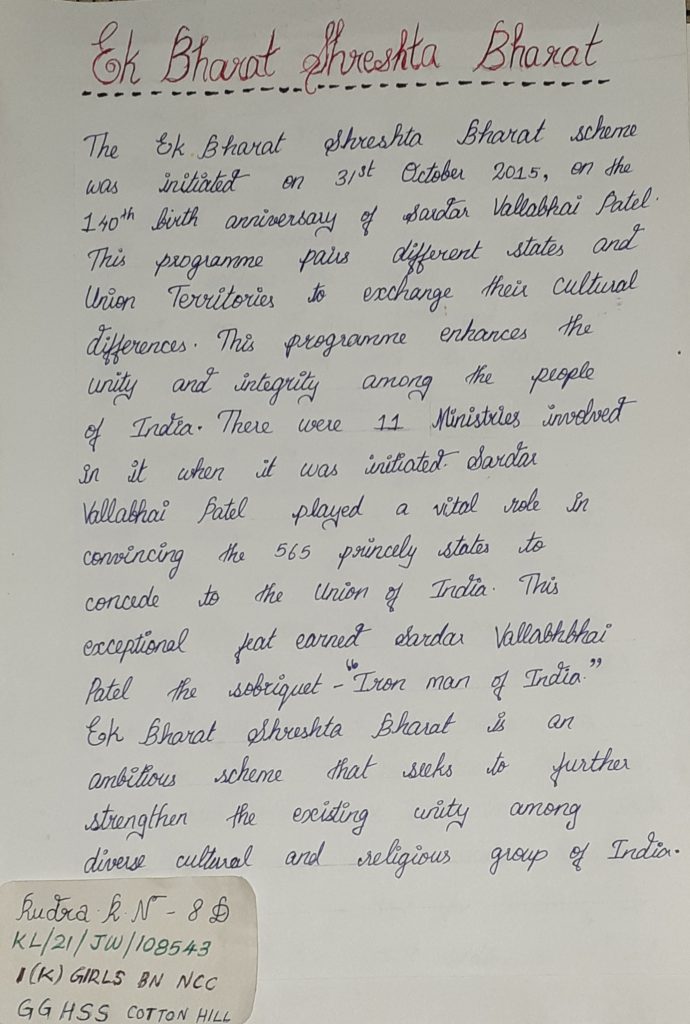 Ek Bharat Shreshta Bharat
The Ek Bharat Shreshta Bharat scheme
was initiated on 31st October 2015, on the
140th birth anniversary of Sardar Vallabhai Patel.
This programme pairs different states and
Union Territories to exchange their cultural
differences. This programme enhances the
unity and integrity among the people
of India. There were 11 Ministries involved
in it when it was initiated. Sardar
Vallabhai Patel played a vital role in
convincing the 565 princely states to
concede to the Union of India. This
exceptional feat earned Sardar Vallabhbhai
Patel the sobriquet - "Iron man of India."
Ek Bharat Shreshta Bharat is an
ambitious scheme that seeks to further
strengthen the existing unity among
diverse cultural and religious group of India.
Rudra R N - 8 D
KL/21/JW/108543
1(K) GIRLS BN NCC
GGHSS COTTON HILL